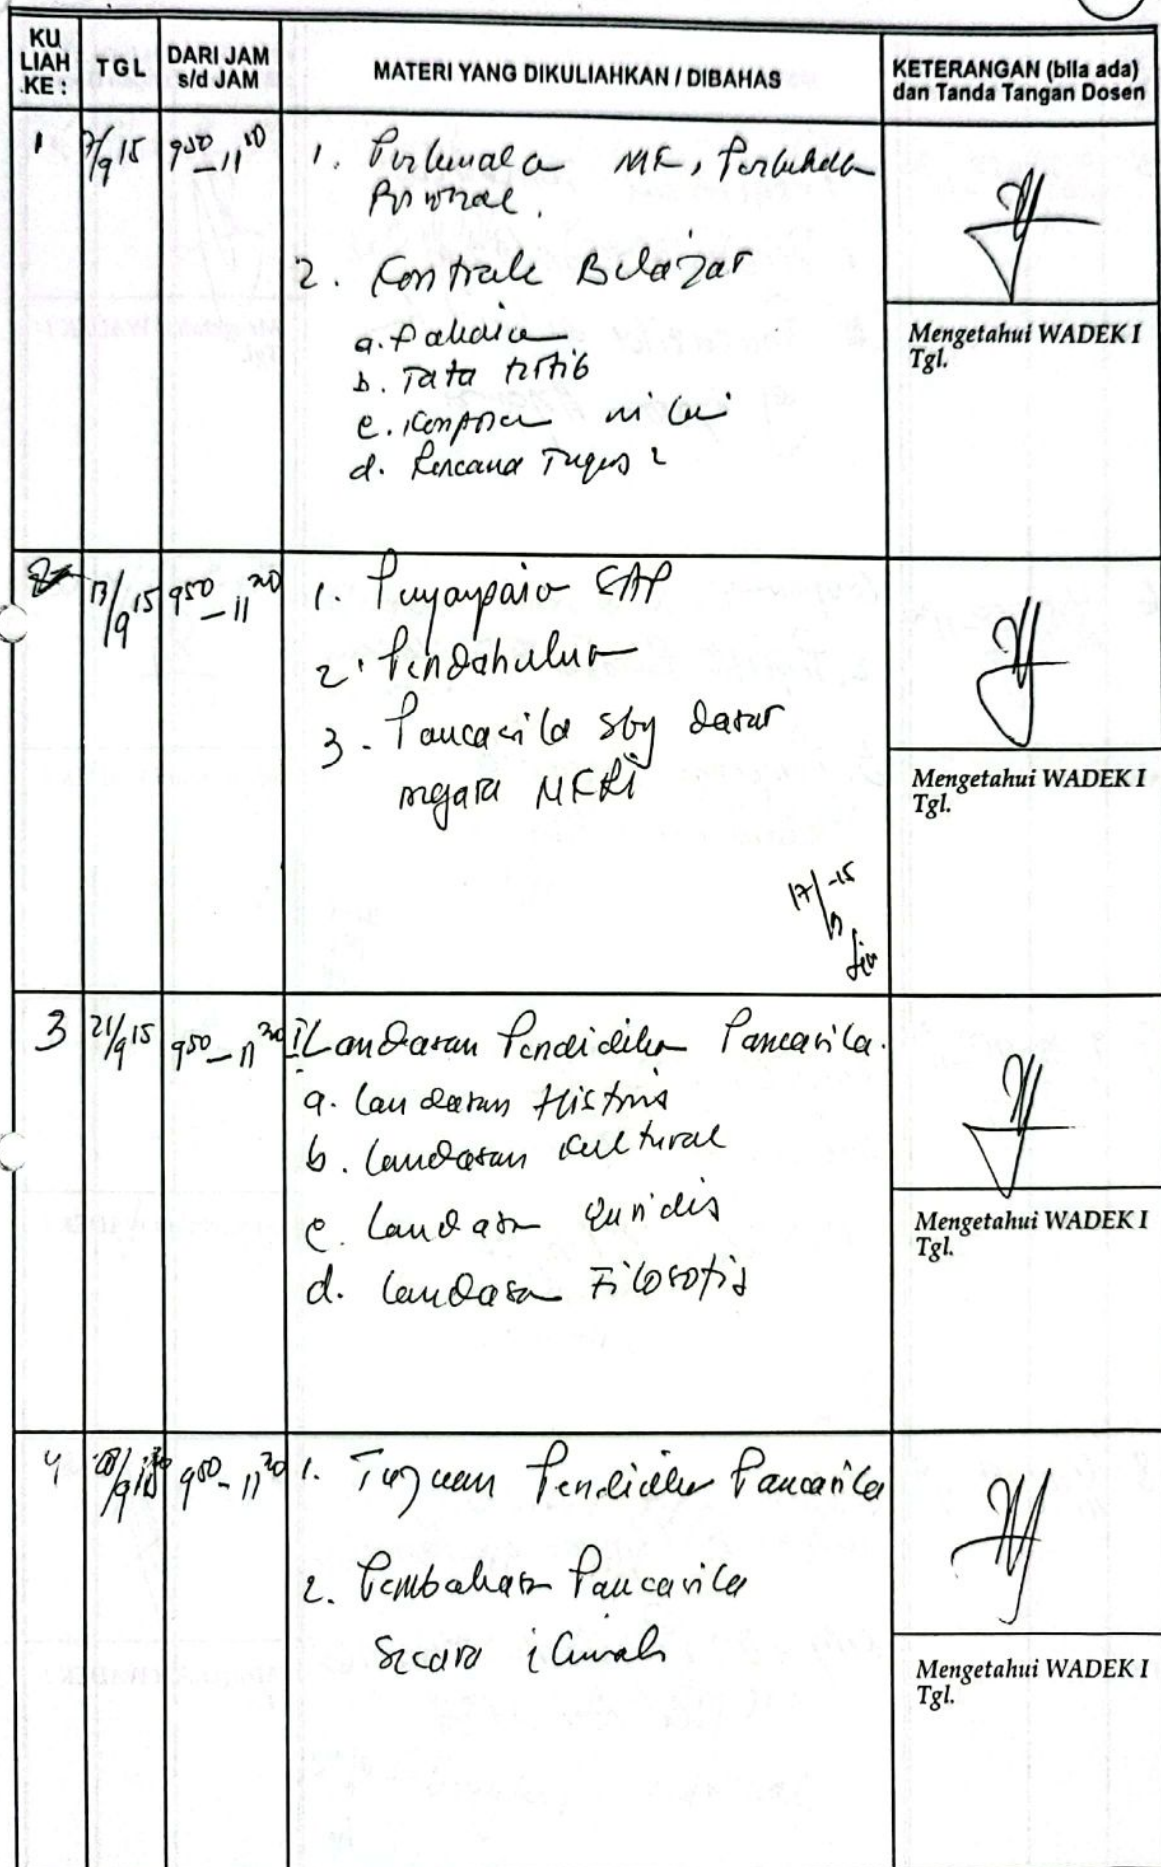 KU LIAH KE : TGL DARI JAM s/d JAM MATERI YANG DIKULIAHKAN / DIBAHAS KETERANGAN (bila ada) dan Tanda Tangan Dosen
1 7/9 15 9 50 – 11
1. MK,
2. Kontrak Belajar
a. Pakaian
b. Tata tertib
c. nilai
d. Rencana Tugas 2
Mengetahui WADEK I
Tgl.
/9 15 9 50 – 11 20
1. SAP
2. Pendahuluan
3. Pancasila sbg dasar
negara NKRI
17/ -15
Mengetahui WADEK I
Tgl.
3 21/9 15 9 50 – 11 20
Landasan Pendidikan Pancasila.
a. Landasan Histris
b. Landasan Kultural
c. Landasan Yuridis
d. Landasan Filosofis
Mengetahui WADEK I
Tgl.
4 28/9 9 50 – 11 20
1. Tujuan Pendidikan Pancasila
2. Pembahasan Pancasila
secara ilmiah
Mengetahui WADEK I
Tgl.